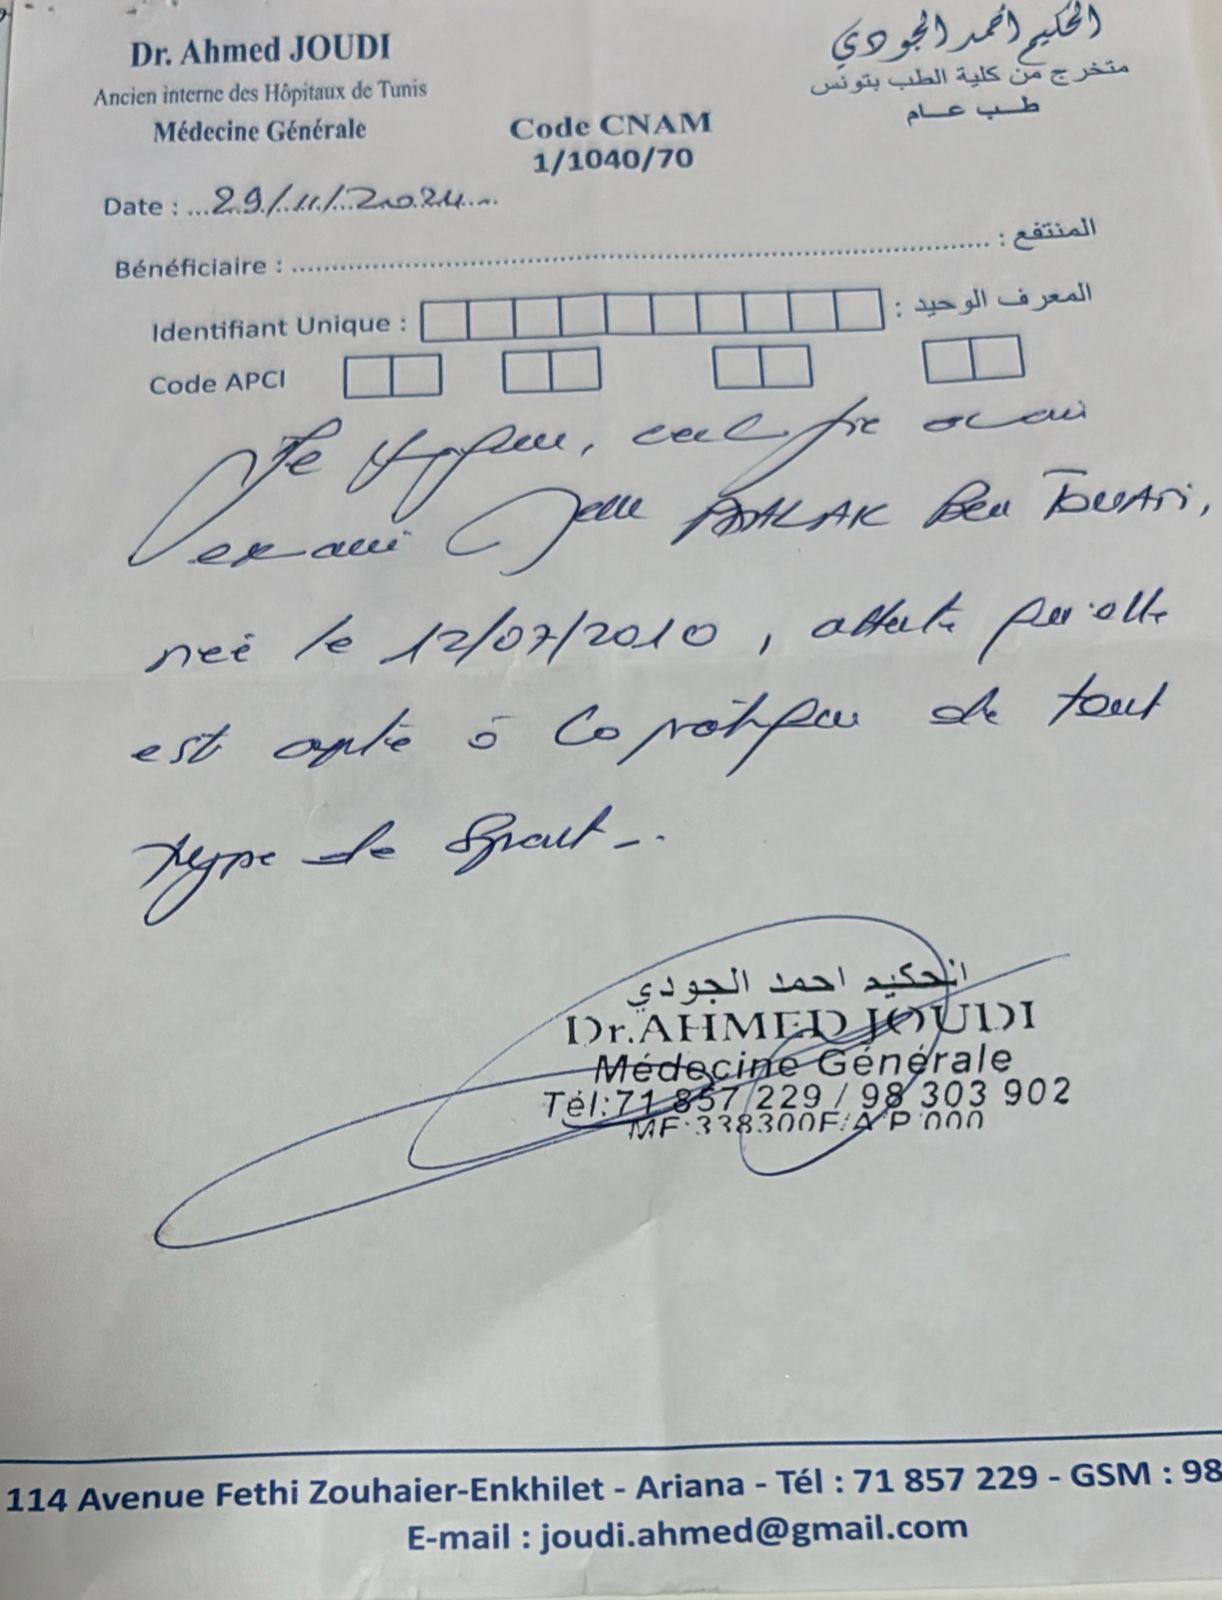 Dr. Ahmed JOUDI
Ancien interne des Hôpitaux de Tunis
Médecine Générale
الحكيم أحمد الجودي
متخرج من كلية الطب بتونس
طـب عـام
Code CNAM
1/1040/70
Date : ...29/11/2024...
Bénéficiaire : ........................ : المنتفع
Identifiant Unique : : المعرف الوحيد
Code APCI
Je soussigné, certifie avoir
examiné Jelle Ben
née le 12/07/2010, atteste qu'elle
est apte à la pratique de tout
type de sport -.
الحكيم احمد الجودي
Dr.AHMED JOUDI
Médecine Générale
Tél:71 857 229 / 98 303 902
MF:338300F/A/P 000
114 Avenue Fethi Zouhaier-Enkhilet - Ariana - Tél : 71 857 229 - GSM : 98
E-mail : joudi.ahmed@gmail.com